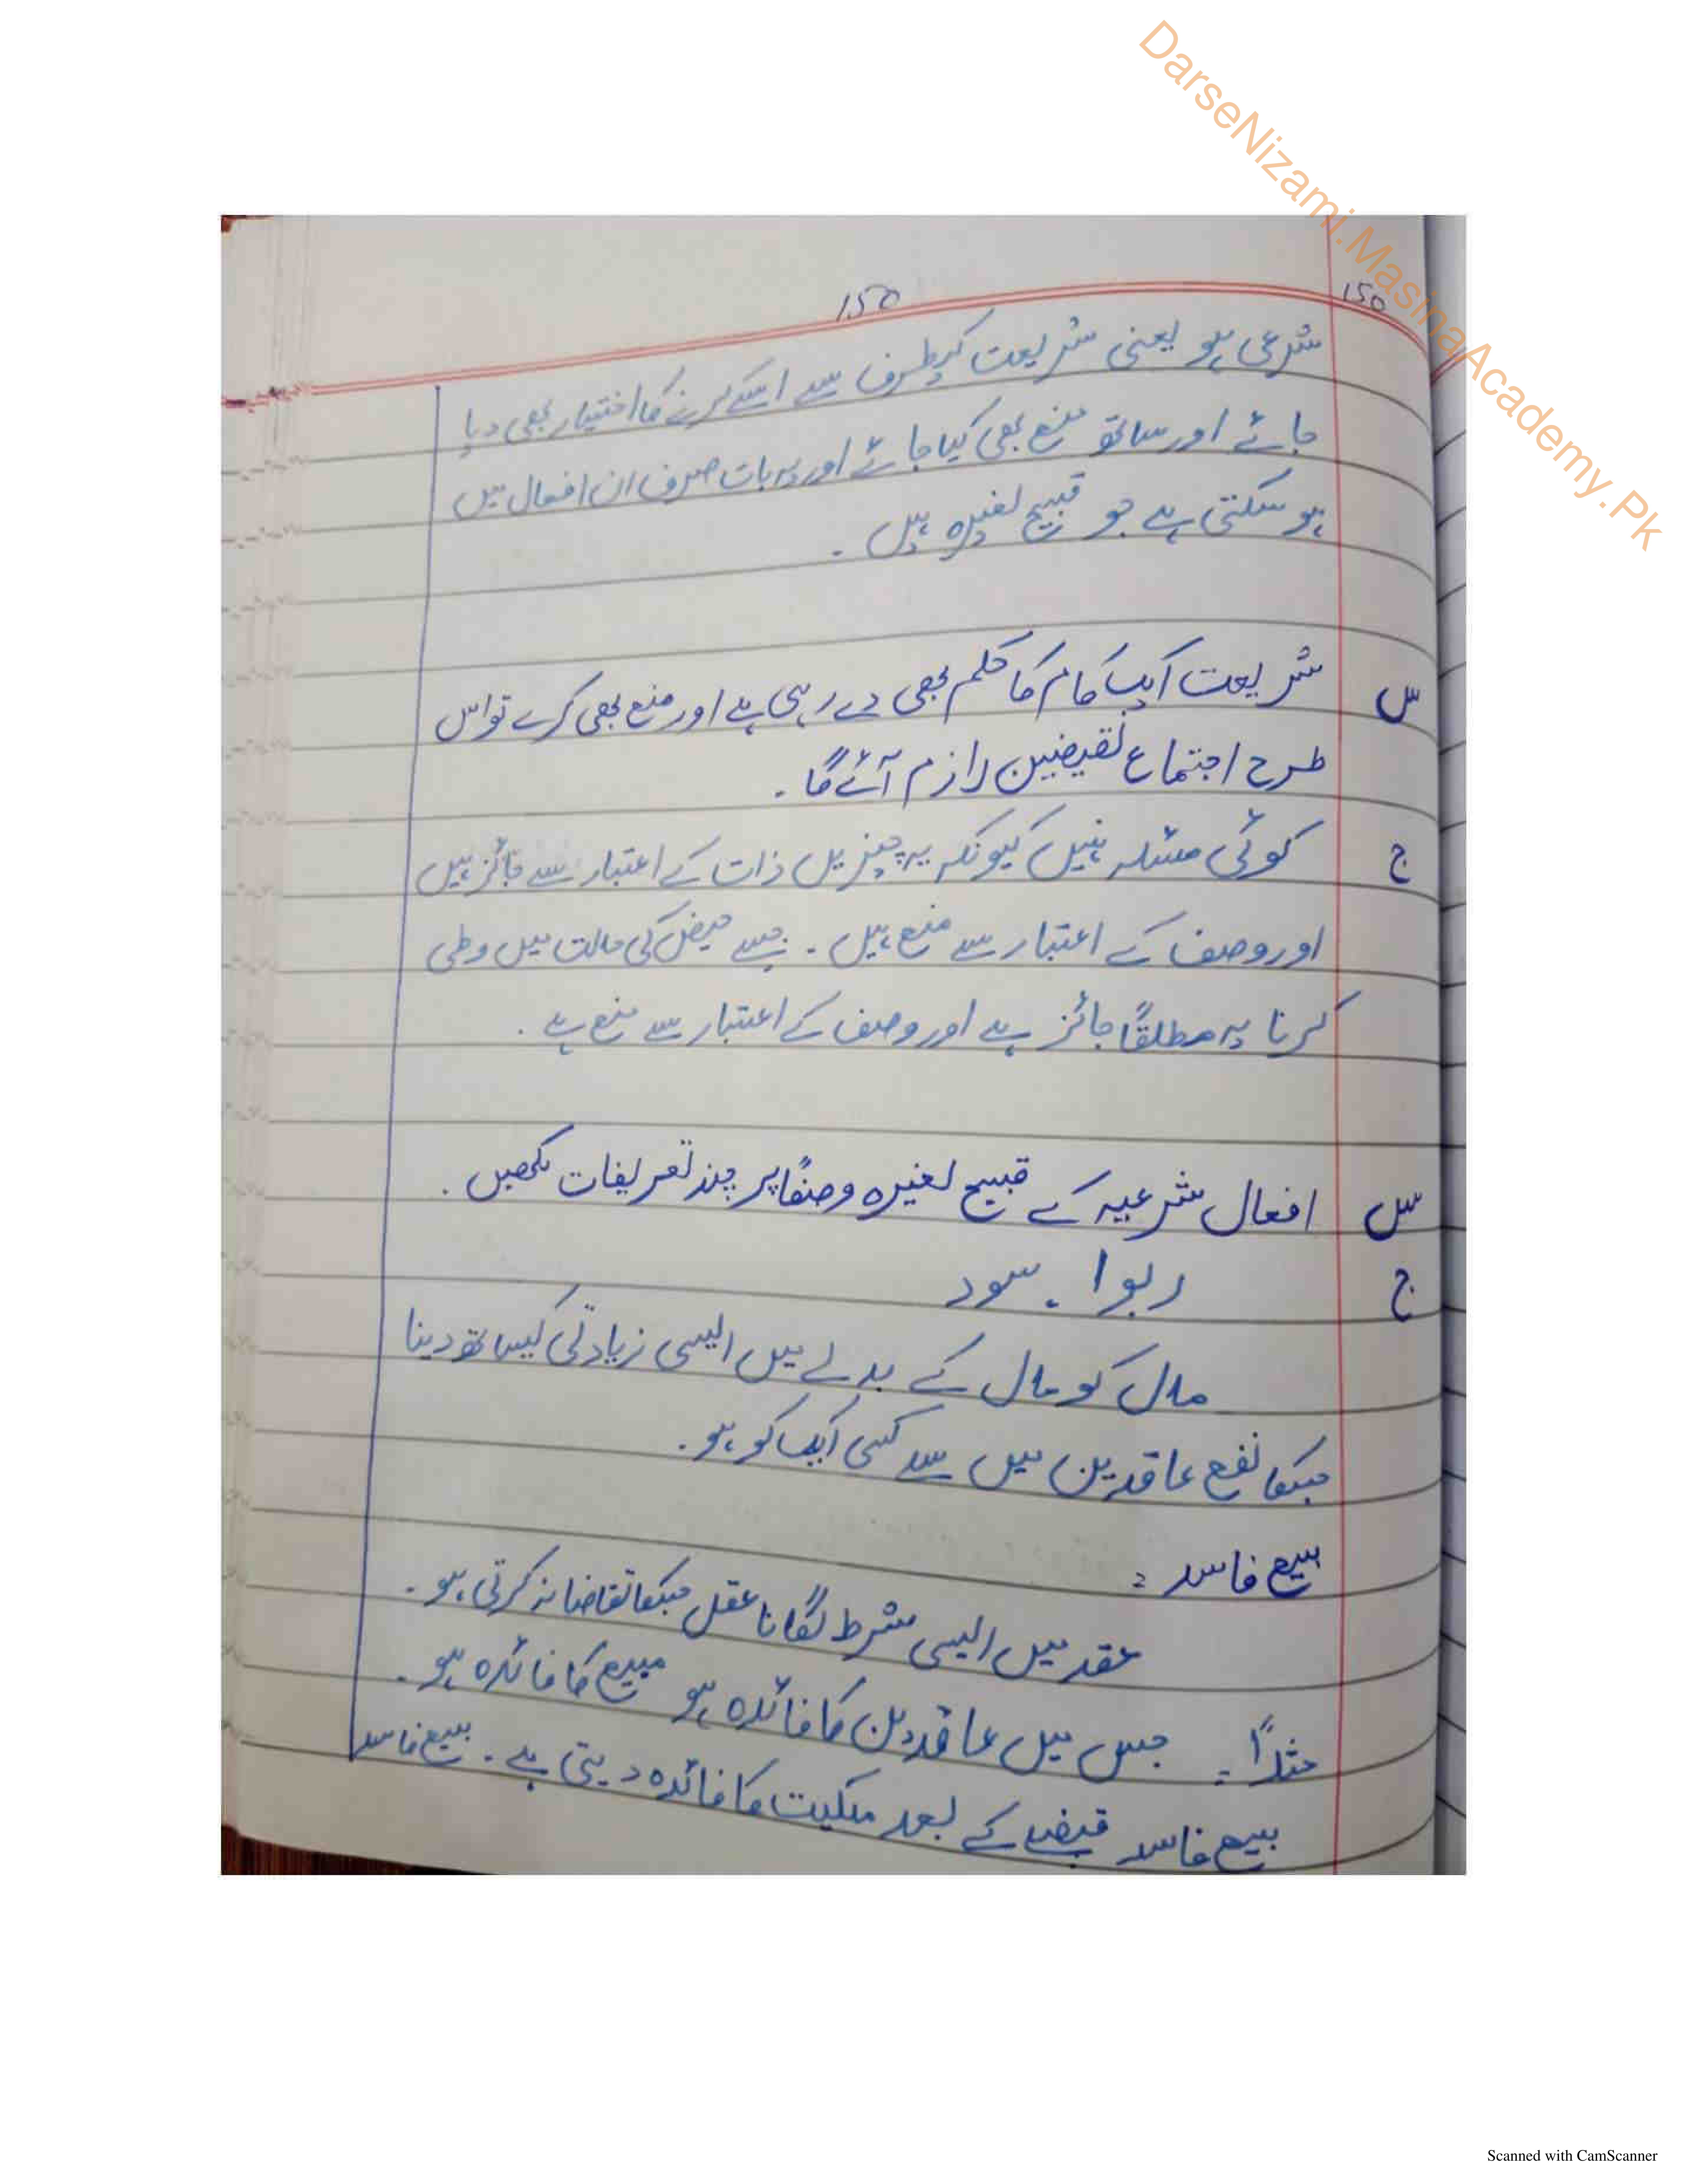 DarseNizami.MasinaAcademy.Pk
150
150
شرعی ہو یعنی شریعت کیطرف سے اسکے کرنے کا اختیار بھی دیا
جائے اور ساتھ منع بھی کیا جائے اور یہ بات صرف ان افعال میں
ہو سکتی ہے جو قبیح لغیرہ ہیں ۔
س شریعت ایک کام کا حکم بھی دے رہی ہے اور منع بھی کرے تو اس
طرح اجتماع نقیضین لازم آئے گا ۔
ج کوئی مسئلہ نہیں کیونکہ یہ چیزیں ذات کے اعتبار سے جائز ہیں
اور وصف کے اعتبار سے منع ہیں ۔ جیسے حیض کی حالت میں وطی
کرنا یہ مطلقاً جائز ہے اور وصف کے اعتبار سے منع ہے ۔
س افعال شرعیہ کے قبیح لغیرہ وصفاً پر چند تعریفات لکھیں ۔
ج ربوا ۔ سود
مال کو مال کے بدلے میں ایسی زیادتی کیساتھ دینا
جسکا نفع عاقدین میں سے کسی ایک کو ہو ۔
بیع فاسد :
عقد میں ایسی شرط لگانا عقل جسکا تقاضا نہ کرتی ہو ۔
مثلاً : جس میں عاقدین کا فائدہ ہو مبیع کا فائدہ ہو ۔
بیع فاسد قبضے کے بعد ملکیت کا فائدہ دیتی ہے ۔ بیع فاسد
Scanned with CamScanner